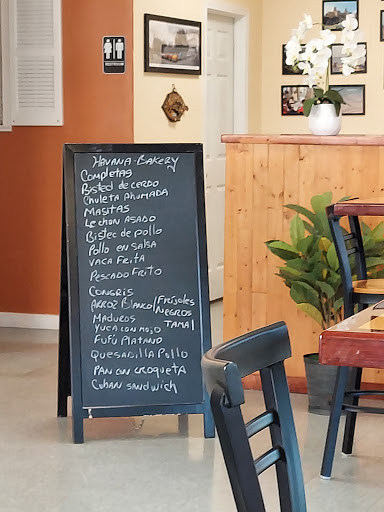 Havana-Bakery
Completas
Bisted de cerdo
Chuleta Ahumada
Masitas
Lechon Asado
Bistec de pollo
Pollo en salsa
Vaca Frita
Pescado Frito
Congris
Arroz Blanco/Frijoles Negros
Maduros
Tamal
Yuca con mojo
Fufú Platano
Quesadilla Pollo
Pan con croqueta
Cuban sandwich